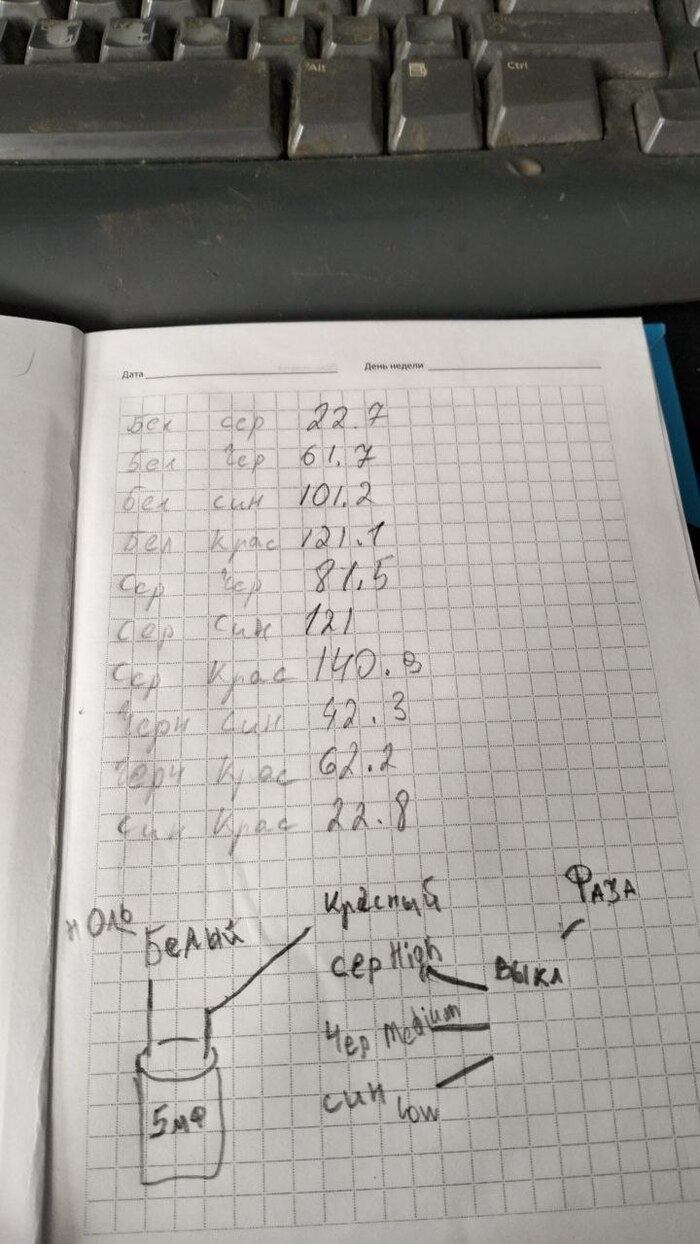 Alt
Ctrl
Дата
День недели
Бел сер 22.7
Бел Чер 61.7
Бел син 101.2
Бел Крас 121.1
Сер Чер 81.5
Сер Син 121
Сер Крас 140.8
Черн Син 42.3
Черн Крас 62.2
Син Крас 22.8
НОЛЬ
Белый
Красный
Фаза
сер High
Выкл
Чер Medium
син Low
5мФ